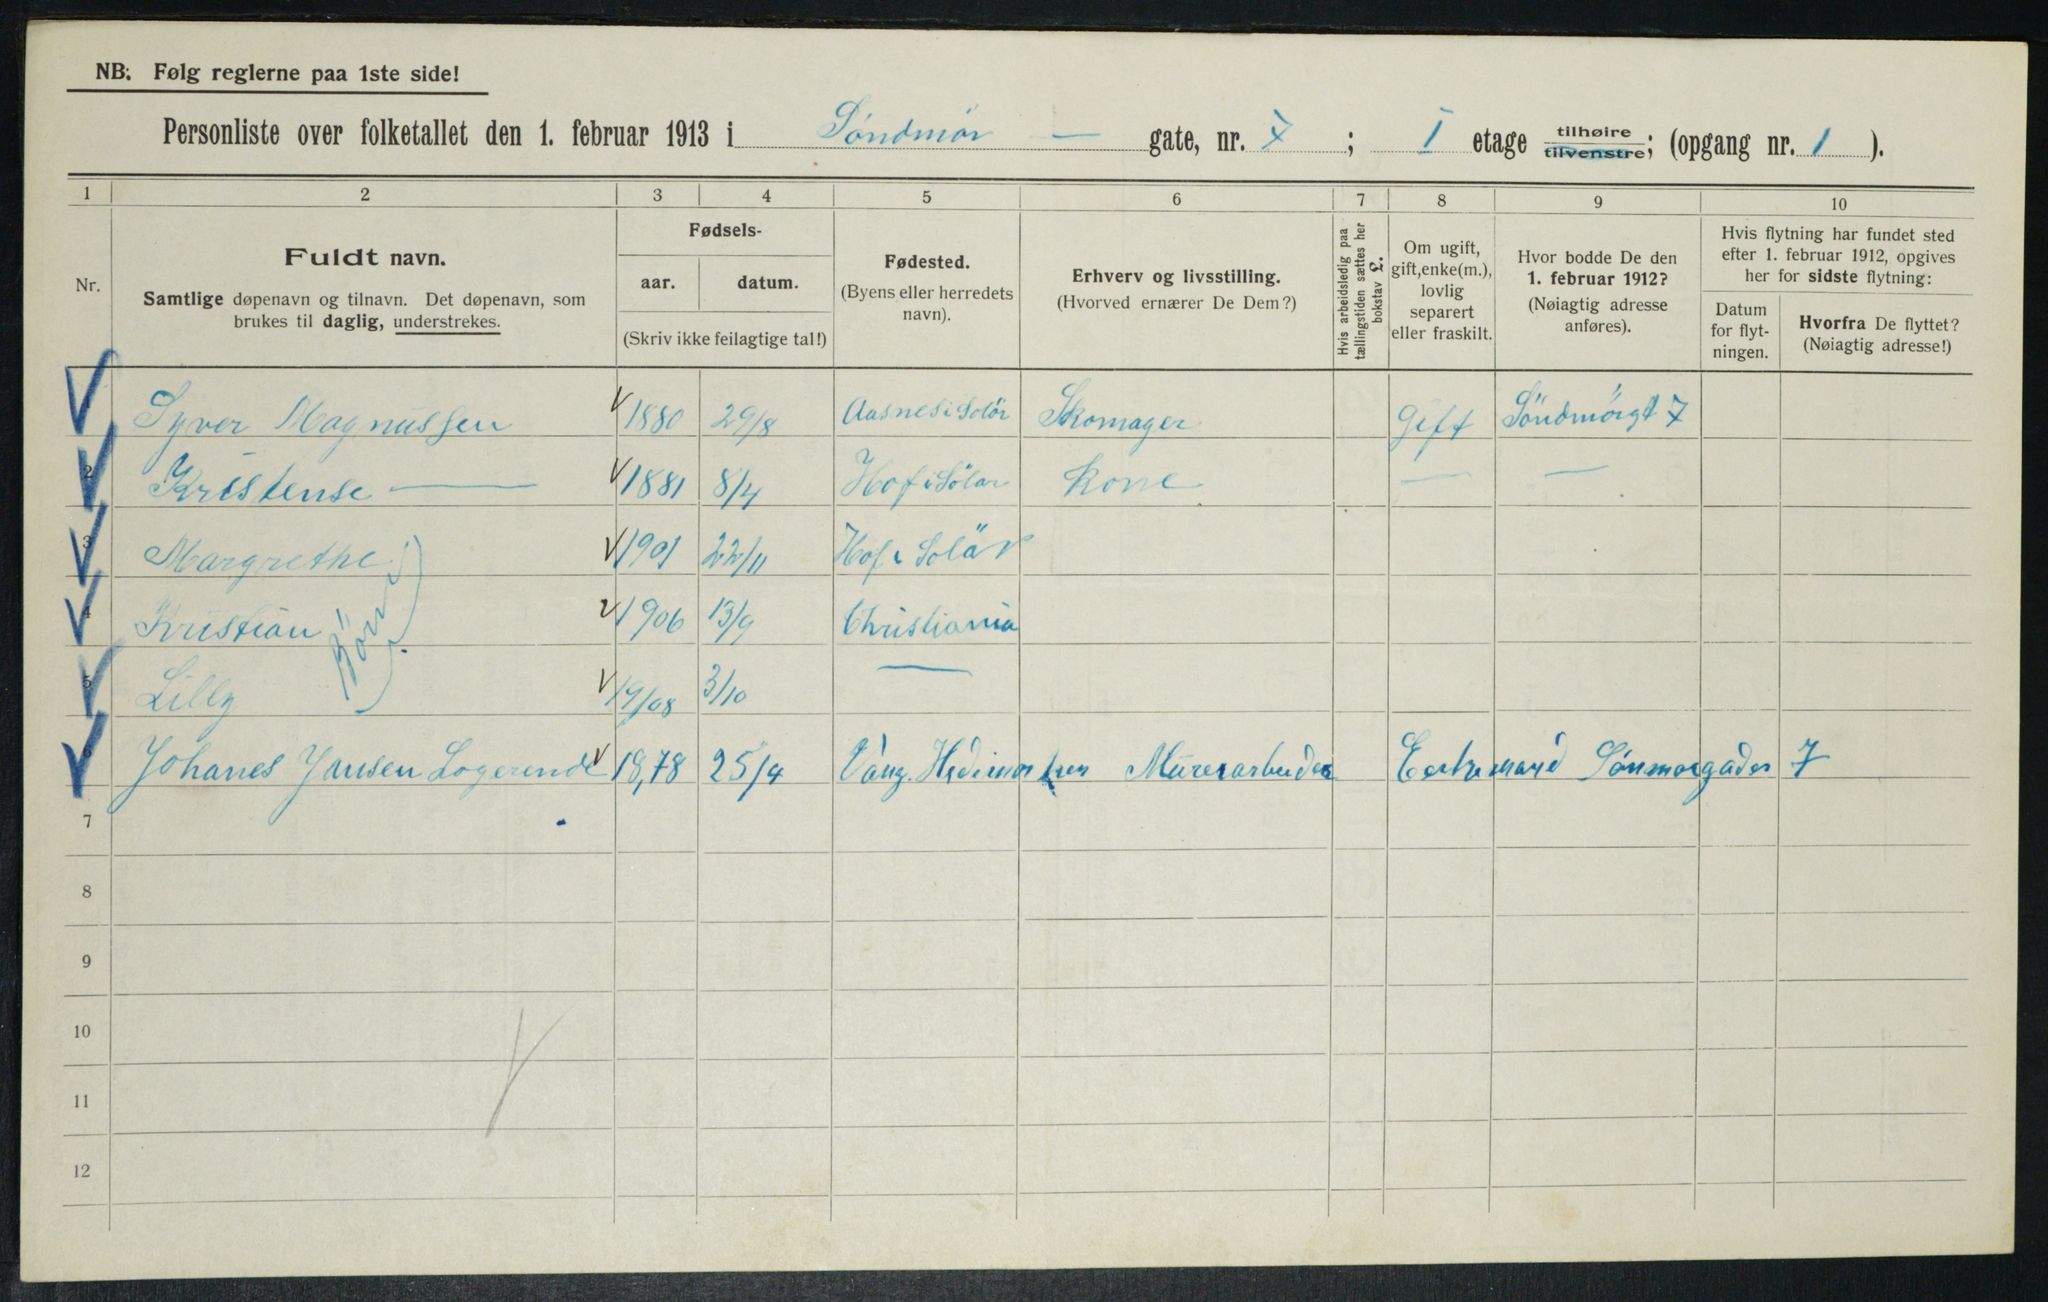 NB. Følg reglerne paa 1ste side!
Personliste over folketallet den 1. februar 1913 i Søndmør — gate, nr. 7; I etage tilhøire tilvenstre; (opgang nr. 1).
1 2 3 4 5 6 7 8 9 10
Nr.
Fuldt navn.
Samtlige døpenavn og tilnavn. Det døpenavn, som
brukes til daglig, understrekes.
Fødsels-
aar. datum.
(Skriv ikke feilagtige tal!)
Fødested.
(Byens eller herredets
navn).
Erhverv og livsstilling.
(Hvorved ernærer De Dem?)
Hvis arbeidsledig paa
tællingstiden sættes her
bokstav L.
Om ugift,
gift, enke(m.),
lovlig
separert
eller fraskilt.
Hvor bodde De den
1. februar 1912?
(Nøiagtig adresse
anføres).
Hvis flytning har fundet sted
efter 1. februar 1912, opgives
her for sidste flytning:
Datum
for flyt-
ningen.
Hvorfra De flyttet?
(Nøiagtig adresse!)
1 Syver Magnussen 1880 29/8 Aasnes i Solör Skomager Gift Söndmörgt 7
2 Kristense — 1881 8/4 Hof i Sölør Kone — —
3 Margrethe 1901 22/11 Hof i Solör
4 Kristian 1906 13/9 Christiania
Börn
5 Lilly 19/08 3/10 —
6 Johanes Jansen Logerende 18,78 25/4 Vang. Hedemarken Murerarbeider Enkemand Sønmørgaden 7
7
8
9
10
11
12